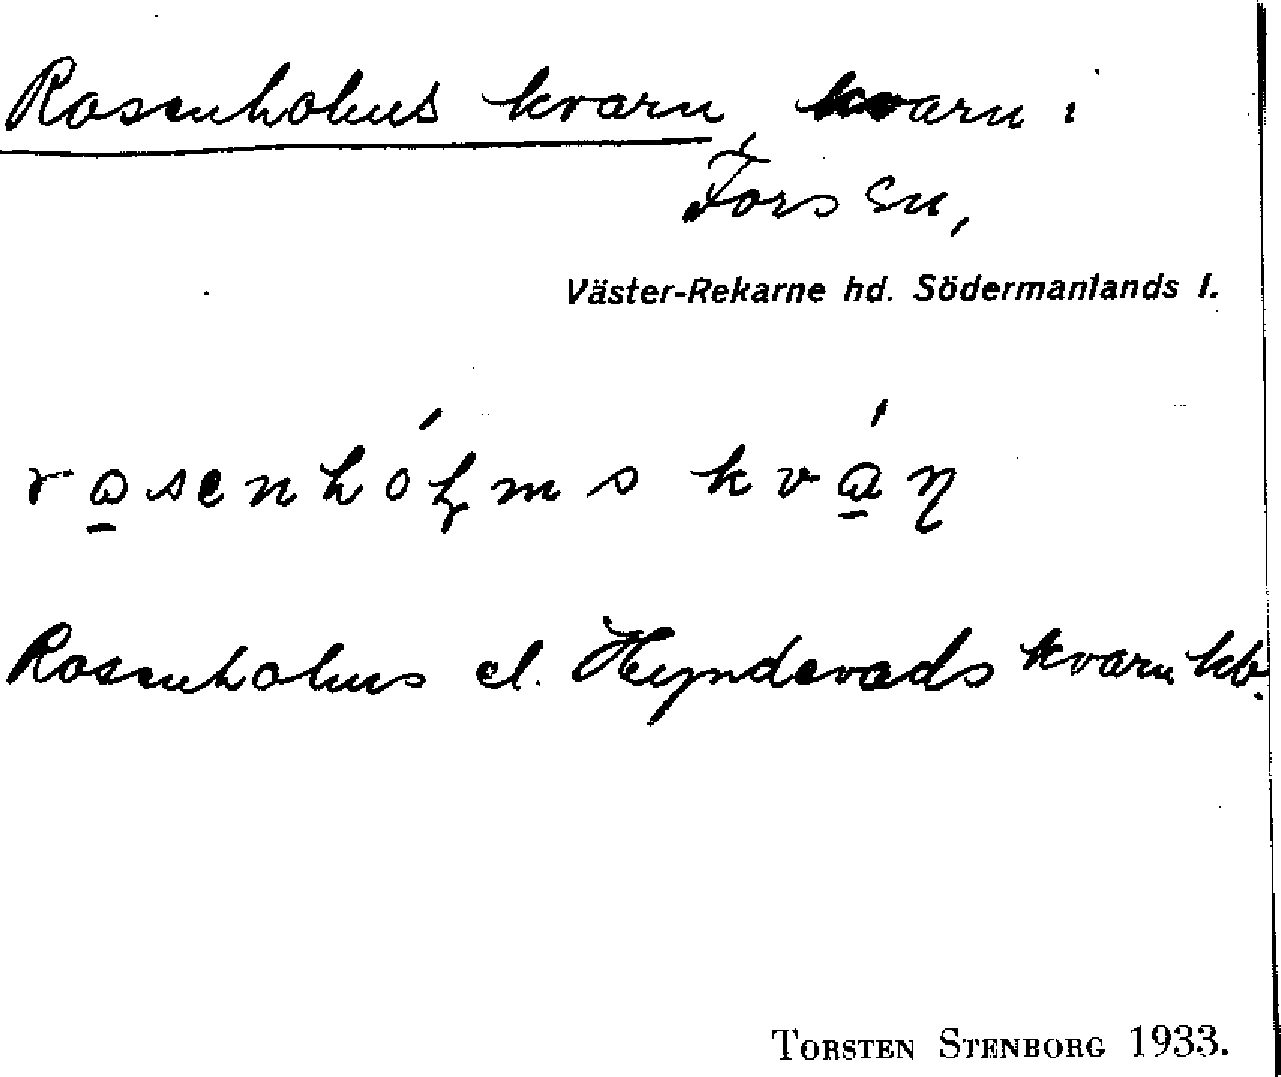 Rosenholms kvarn, kvarn i
Fors sn,
Väster-Rekarne hd. Södermanlands l.
rosenhólms kván
Rosenholms el. Hyndevads kvarn kb.
TORSTEN STENBORG 1933.